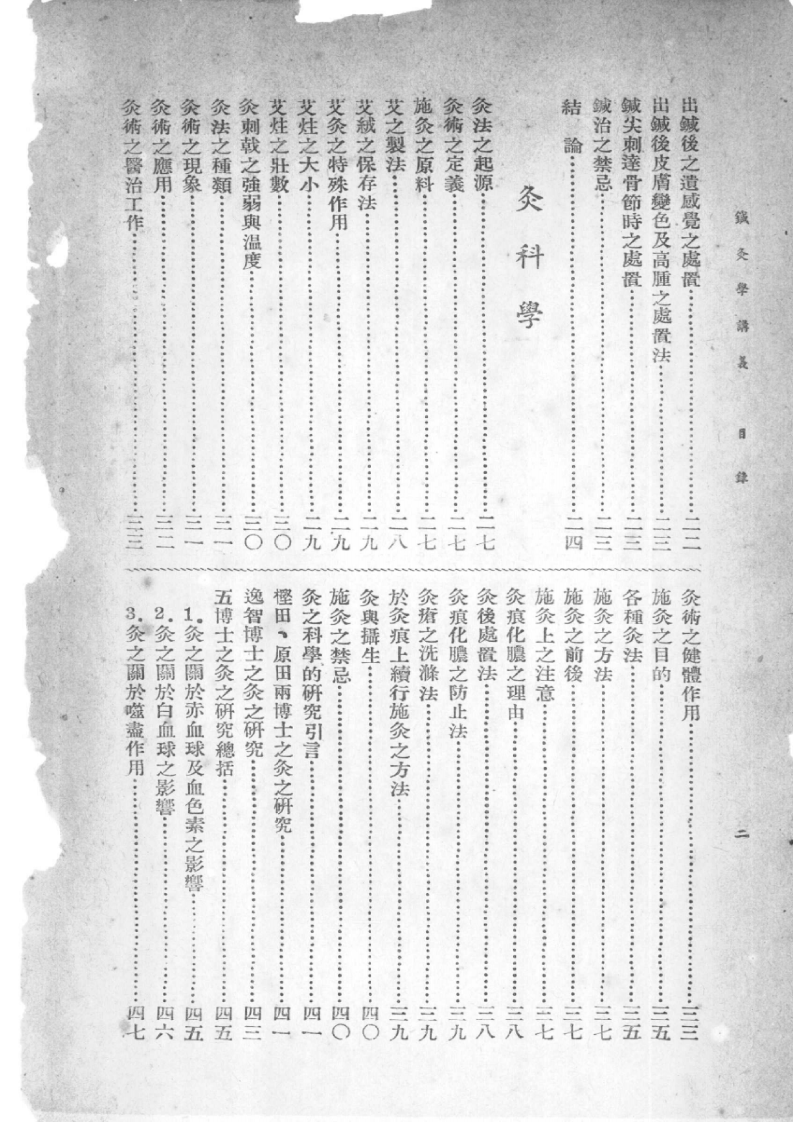 鍼灸學講義 目錄 二
出鍼後之遺感覺之處置……二二
出鍼後皮膚變色及高腫之處置法……二三
鍼尖刺達骨節時之處置……二三
鍼治之禁忌……二三
結論……二四
灸科學
灸法之起源……二七
灸術之定義……二七
施灸之原料……二七
艾之製法……二八
艾絨之保存法……二九
艾灸之特殊作用……二九
艾炷之大小……二九
艾炷之壯數……三〇
灸刺戟之強弱與溫度……三〇
灸法之種類……三一
灸術之現象……三一
灸術之應用……三二
灸術之醫治工作……三三
灸術之健體作用……三三
施灸之目的……三五
各種灸法……三五
施灸之方法……三七
施灸之前後……三七
施灸上之注意……三七
灸痕化膿之理由……三八
灸後處置法……三八
灸痕化膿之防止法……三九
灸瘡之洗滌法……三九
於灸痕上續行施灸之方法……三九
灸與攝生……四〇
施灸之禁忌……四〇
灸之科學的研究引言……四一
樫田、原田兩博士之灸之研究……四一
逸智博士之灸之研究……四三
五博士之灸之研究總括……四五
1。灸之關於赤血球及血色素之影響……四五
2。灸之關於白血球之影響……四六
3。灸之關於噬盡作用……四七